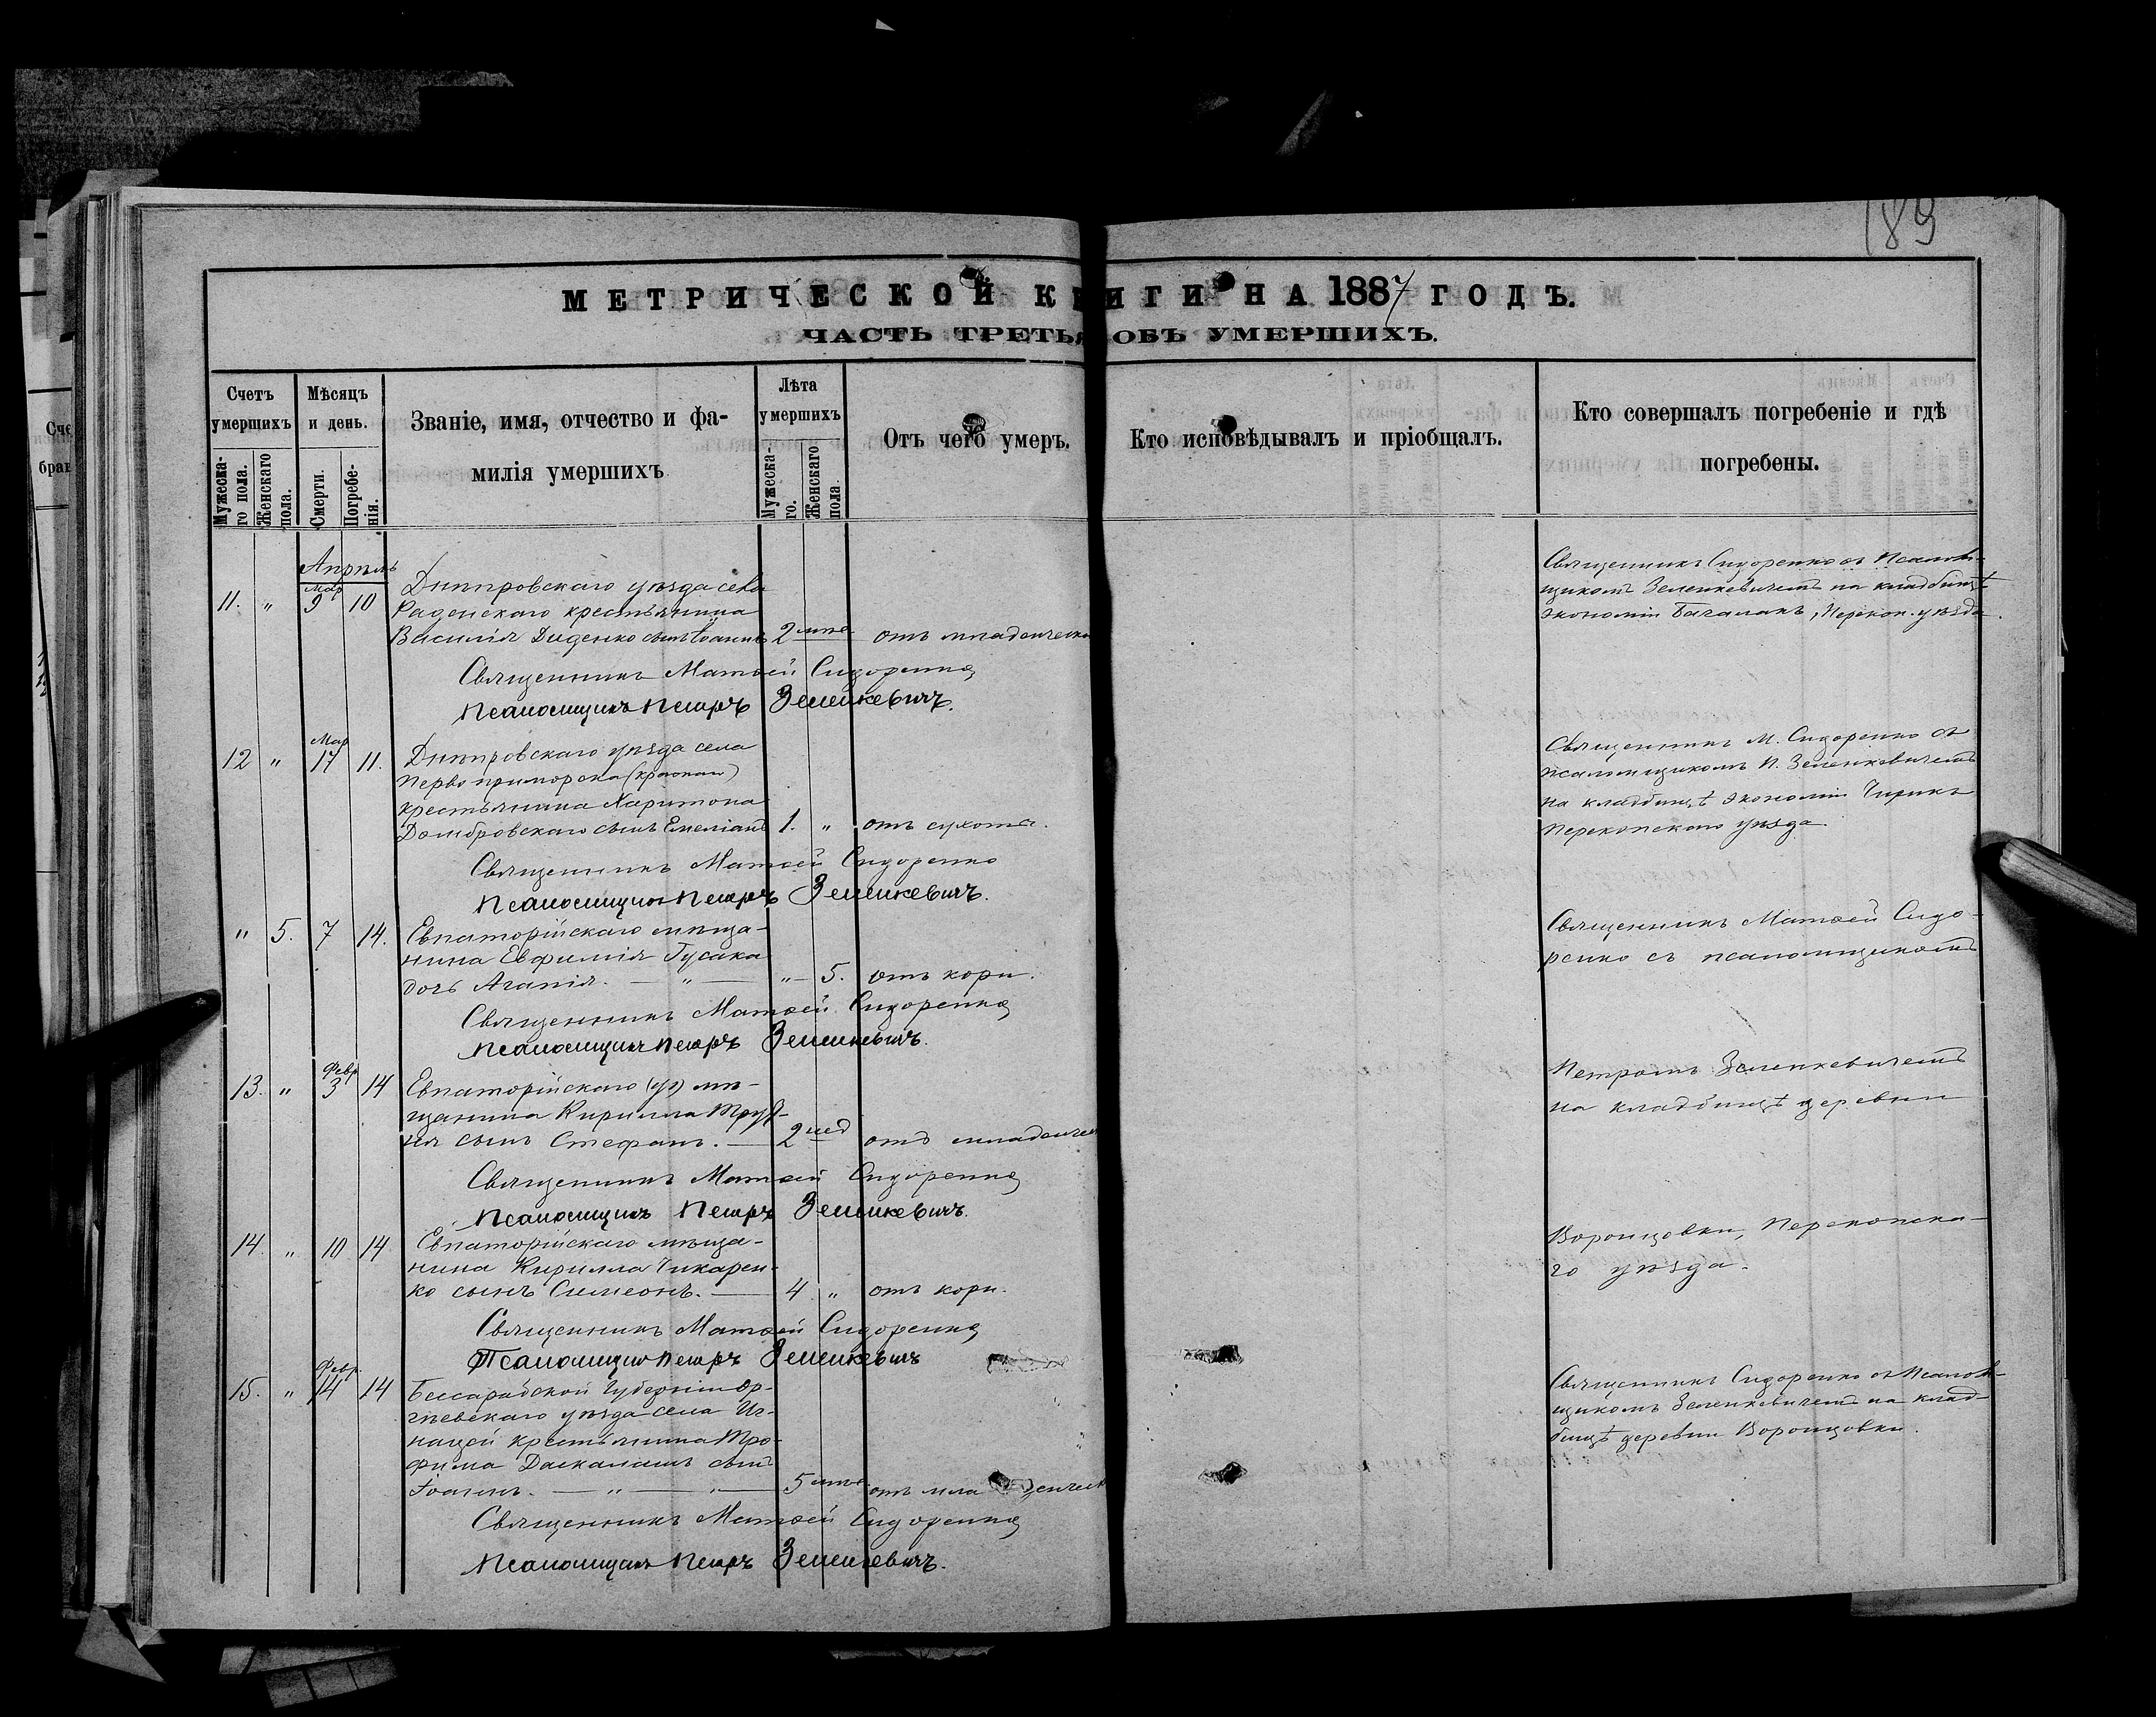 189
МЕТРИЧЕСКОЙ КНИГИ НА 1887 ГОДЪ.
ЧАСТЬ ТРЕТЬЯ ОБЪ УМЕРШИХЪ.
Счетъ умершихъ
Мужеска-го пола.
Женскаго пола.
Мѣсяцъ и день.
Смерти.
Погребе-нія.
Званіе, имя, отчество и фа-
милія умершихъ
Лѣта умершихъ
Мужеска-го.
Женскаго пола
Отъ чего умеръ.
Кто исповѣдывалъ и пріобщалъ.
Кто совершалъ погребеніе и гдѣ
погребены.
Апрѣль
Мар
11. " 9 10
Днѣпровскаго уѣзда села
Раденскаго крестьянина
Василія Диденко сынъ Іоаннъ 2 отъ младенческ
Священникъ Матѳей Сидоренко
Псаломщикъ Петръ Зеленкевичъ.
Священникъ Сидоренко съ Псалом-
щикомъ Зеленкевичемъ на кладбищѣ
экономіи Бачалакъ, Перекоп. уѣзда.
Мар
12 " 17 11.
Днѣпровскаго уѣзда села
крестьянина Харитона
Домбровскаго сынъ Емеліанъ 1. " отъ сухоты.
Священникъ Матѳей Сидоренко
Псаломщикъ Петръ Зеленкевичъ.
Священникъ М. Сидоренко съ
псаломщикомъ П. Зеленкевичемъ
на кладбищѣ экономіи Чирикъ
Перекопскаго уѣзда
" 5. 7 14.
Евпаторійскаго мѣща-
нина Евфимія Гусака
дочь Агапія. — " — " 5. отъ кори.
Священникъ Матѳей Сидоренко
Псаломщикъ Петръ Зеленкевичъ.
Священникъ Матѳей Сидо-
ренко съ псаломщикомъ
Февр
13. " 3 14
Евпаторійскаго мѣ-
щанина Кирилла
сынъ Стефанъ. — 2 нед отъ младенчес
Священникъ Матѳей Сидоренко
Псаломщикъ Петръ Зеленкевичъ.
Петромъ Зеленкевичемъ
на кладбищѣ деревни
14. " 10 14
Евпаторійскаго мѣща-
нина Кирилла Чикарен-
ко сынъ Симеонъ. — 4 " отъ кори.
Священникъ Матѳей Сидоренко
Псаломщикъ Петръ Зеленкевичъ
Воронцовки, Перекопска-
го уѣзда.
Февр.
15. " 14 14
Бессарабской Губерніи Ор-
гѣевскаго уѣзда села Иг-
нацей крестьянина Тро-
фима Даскалашъ сынъ
Іоаннъ. — " — " — 5 отъ младенческ
Священникъ Матѳей Сидоренко
Псаломщикъ Петръ Зеленкевичъ.
Священникъ Сидоренко съ Псалом-
щикомъ Зеленкевичемъ на клад-
бищѣ деревни Воронцовки.